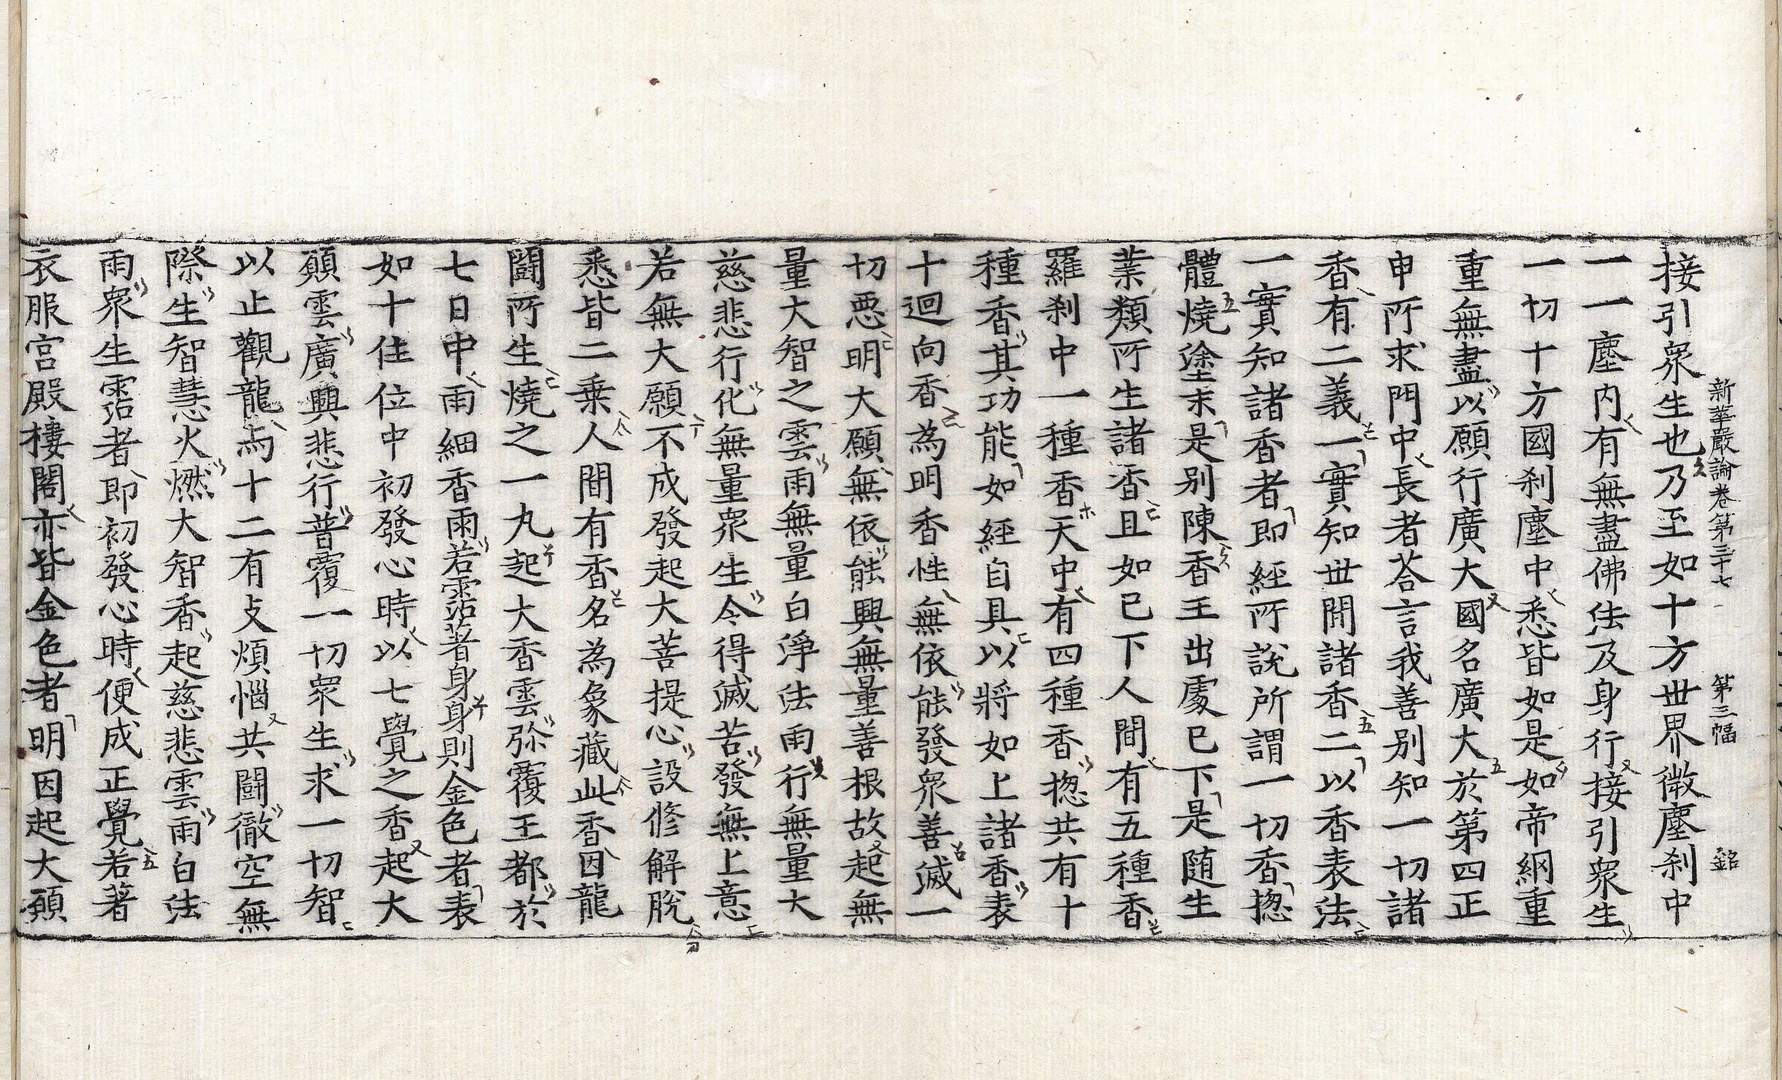 接引衆生也乃至如十方世界微塵刹中
新華嚴論卷第三十七 第三幅 銘
一一塵内有無盡佛法及身行接引衆生
一切十方國刹塵中悉皆如是如帝網重
重無盡以願行廣大國名廣大於第四正
申所求門中長者荅言我善别知一切諸
香有二義一實知世間諸香二以香表法
一實知諸香者即經所說所謂一切香揔
體燒塗末是别陳香王出處已下是随生
業類所生諸香且如已下人間有五種香
羅刹中一種香天中有四種香揔共有十
種香其功能如經自具以將如上諸香表
十迴向香為明香性無依能發衆善滅一
切惡明大願無依能興無量善根故起無
量大智之雲雨無量白淨法雨行無量大
慈悲行化無量衆生令得滅苦發無上意
若無大願不成發起大菩提心設修解脫
悉皆二乗人間有香名為象藏此香因龍
鬪所生燒之一丸起大香雲弥覆王都於
七日中雨細香雨若霑著身身則金色者表
如十住位中初發心時以七覺之香起大
願雲廣興悲行普覆一切衆生求一切智
以止觀龍与十二有支煩惱共鬪徹空無
際生智慧火燃大智香起慈悲雲雨白法
雨衆生霑者即初發心時便成正覺若著
衣服宫殿樓閣亦皆金色者明因起大願